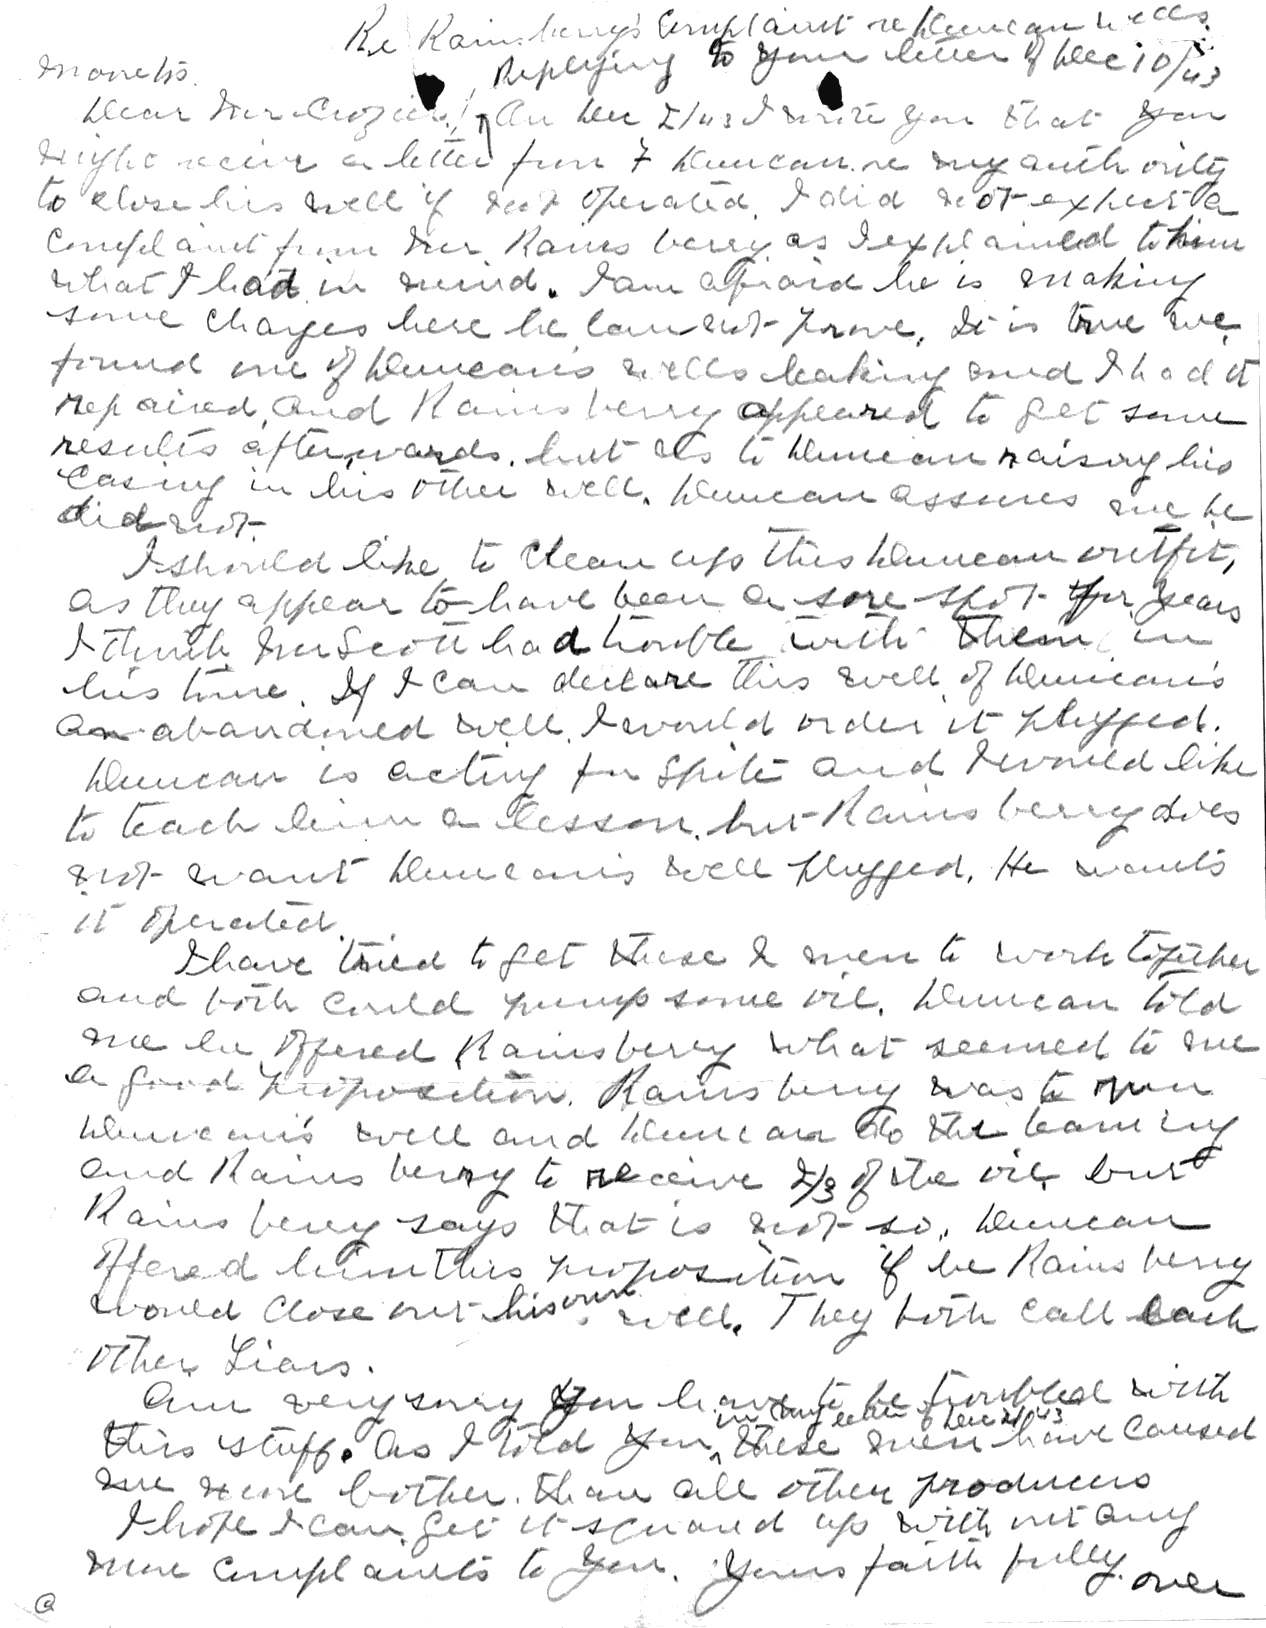 Re Rainsberry's Complaint re Duncan wells.
Replying to your letter of Dec 10/43
months.
Dear Mr Crozier, On Dec 2/43 I wrote you that you
might receive a letter from F Duncan re my authority
to close his well if not operated. I did not expect a
complaint from Mr Rainsberry as I explained to him
what I had in mind. I am afraid he is making
some charges here he can not prove. It is true we
found one of Duncan's wells leaking and I had it
repaired and Rainsberry appeared to get some
results afterwards. but as to Duncan raising his
casing in his other well. Duncan assures me he
did not.
I should like to clean up this Duncan outfit,
as they appear to have been a sore spot for years
I think Mr Scott had trouble with them in
his time. If I can declare this well of Duncan's
an abandoned well I would order it plugged.
Duncan is acting for spite and I would like
to teach him a lesson. but Rainsberry does
not want Duncan's well plugged. He wants
it operated.
I have tried to get these 2 men to work together
and both could pump some oil. Duncan told
me he offered Rainsberry what seemed to me
a good proposition. Rainsberry was to run
Duncan's well and Duncan do the teaming
and Rainsberry to receive 2/3 of the oil but
Rainsberry says that is not so. Duncan
offered him this proposition if he Rainsberry
would close out his own well. They both call each
other Liars.
Am very sorry you have to be troubled with
in my letter of Dec 2/43
this stuff. As I told you these men have caused
me more bother than all other producers
I hope I can get it squared up with out any
more complaints to you. Yours faithfully. over